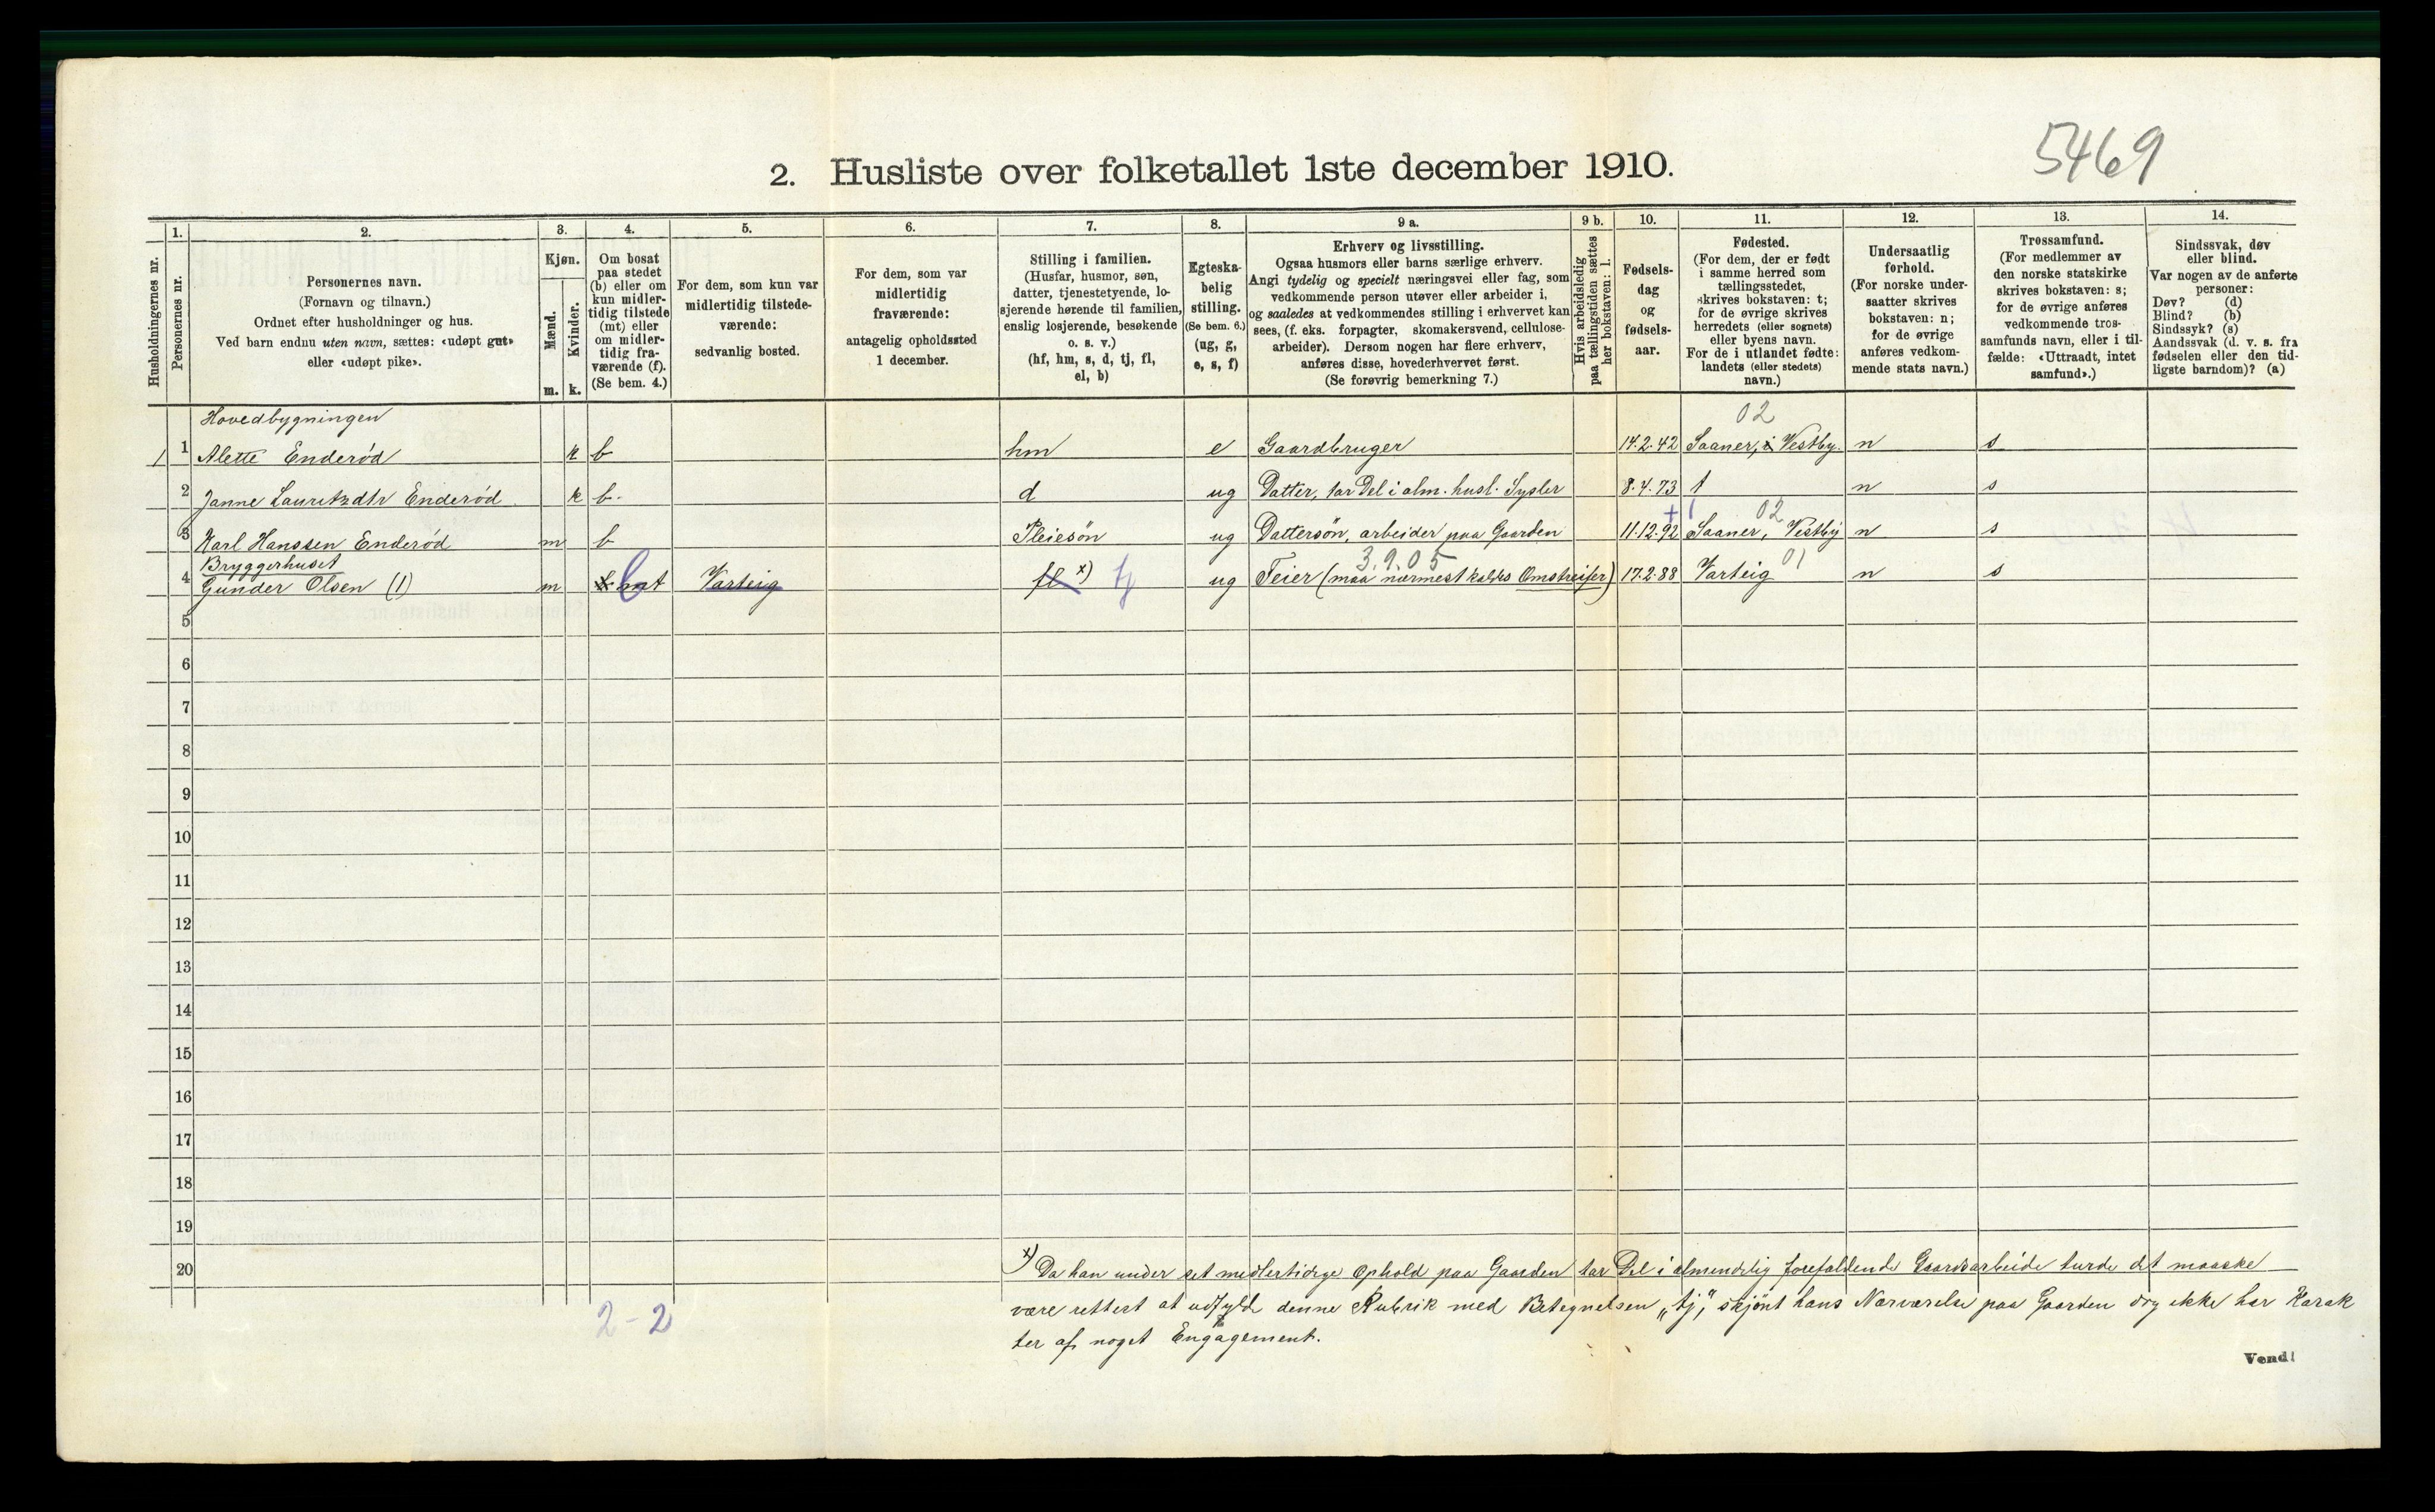 5469
2. Husliste over folketallet 1ste december 1910.
1. 2. 3. 4. 5. 6. 7. 8. 9 a. 9 b. 10. 11. 12. 13. 14.
Husholdningernes nr.
Personernes nr.
Personernes navn.
(Fornavn og tilnavn.)
Ordnet efter husholdninger og hus.
Ved barn endnu uten navn, sættes: «udøpt gut»
eller «udøpt pike».
Kjøn.
Mænd.
Kvinder.
m. k.
Om bosat
paa stedet
(b) eller om
kun midler-
tidig tilstede
(mt) eller
om midler-
tidig fra-
værende (f).
(Se bem. 4.)
For dem, som kun var
midlertidig tilstede-
værende:
sedvanlig bosted.
For dem, som var
midlertidig
fraværende:
antagelig opholdssted
1 december.
Stilling i familien.
(Husfar, husmor, søn,
datter, tjenestetyende, lo-
sjerende hørende til familien,
enslig losjerende, besøkende
o. s. v.)
(hf, hm, s, d, tj, fl,
el, b)
Egteska-
belig
stilling.
(Se bem. 6.)
(ug, g,
e, s, f)
Erhverv og livsstilling.
Ogsaa husmors eller barns særlige erhverv.
Angi tydelig og specielt næringsvei eller fag, som
vedkommende person utøver eller arbeider i,
og saaledes at vedkommendes stilling i erhvervet kan
sees, (f. eks. forpagter, skomakersvend, cellulose-
arbeider). Dersom nogen har flere erhverv,
anføres disse, hovederhvervet først.
(Se forøvrig bemerkning 7.)
Hvis arbeidsledig
paa tællingstiden sættes
her bokstaven: l.
Fødsels-
dag
og
fødsels-
aar.
Fødested.
(For dem, der er født
i samme herred som
tællingsstedet,
skrives bokstaven: t;
for de øvrige skrives
herredets (eller sognets)
eller byens navn.
For de i utlandet fødte:
landets (eller stedets)
navn.)
Undersaatlig
forhold.
(For norske under-
saatter skrives
bokstaven: n;
for de øvrige
anføres vedkom-
mende stats navn.)
Trossamfund.
(For medlemmer av
den norske statskirke
skrives bokstaven: s;
for de øvrige anføres
vedkommende tros-
samfunds navn, eller i til-
fælde: «Uttraadt, intet
samfund».)
Sindssvak, døv
eller blind.
Var nogen av de anførte
personer:
Døv? (d)
Blind? (b)
Sindssyk? (s)
Aandssvak (d. v. s. fra
fødselen eller den tid-
ligste barndom)? (a)
Hovedbygningen 02
1 1 Alette Enderød k b hm e Gaardbruger 14.2.42 Saaner, i Vestby. n s
2 Janne Lauritzdtr Enderød k b. d ug Datter, tar Del i alm. husl. Sysler 8.4.73 t n s
02
3 Karl Hanssen Enderød m b Pleiesøn ug Dattersøn, arbeider paa Gaarden 11.12.92 Saaner, Vestby n s
Bryggerhuset 3.9.05 01
4 Gunder Olsen (1) m mt b Varteig fl x) tj ug Feier (maa nærmest kaldes Omstreifer) 17.2.88 Varteig n s
5
6
7
8
9
10
11
12
13
14
15
16
17
18
19
20
x) Da han under det midlertidige Ophold paa Gaarden tar Del i almindelig forefaldende Gaardsarbeide turde det maaske
være rettest at udfylde denne Rubrik med Betegnelsen „tj", skjønt hans Nærværelse paa Gaarden dog ikke har Karak
ter af noget Engagement.
2 - 2
Vend!